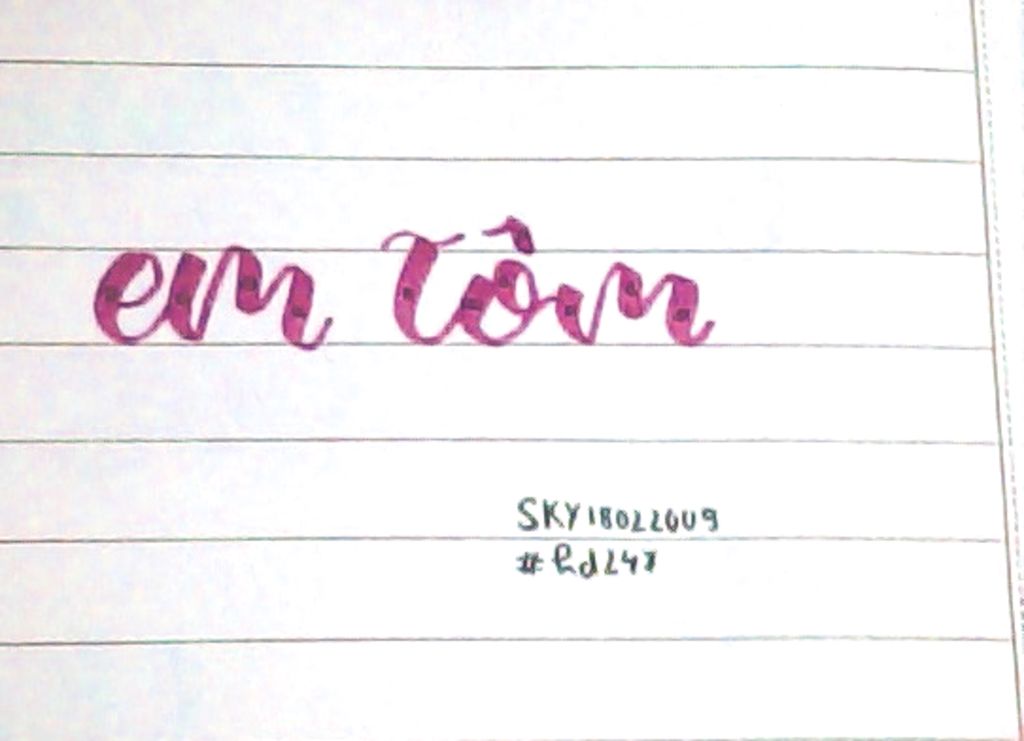 em tôm
SKY18022009
#hd247